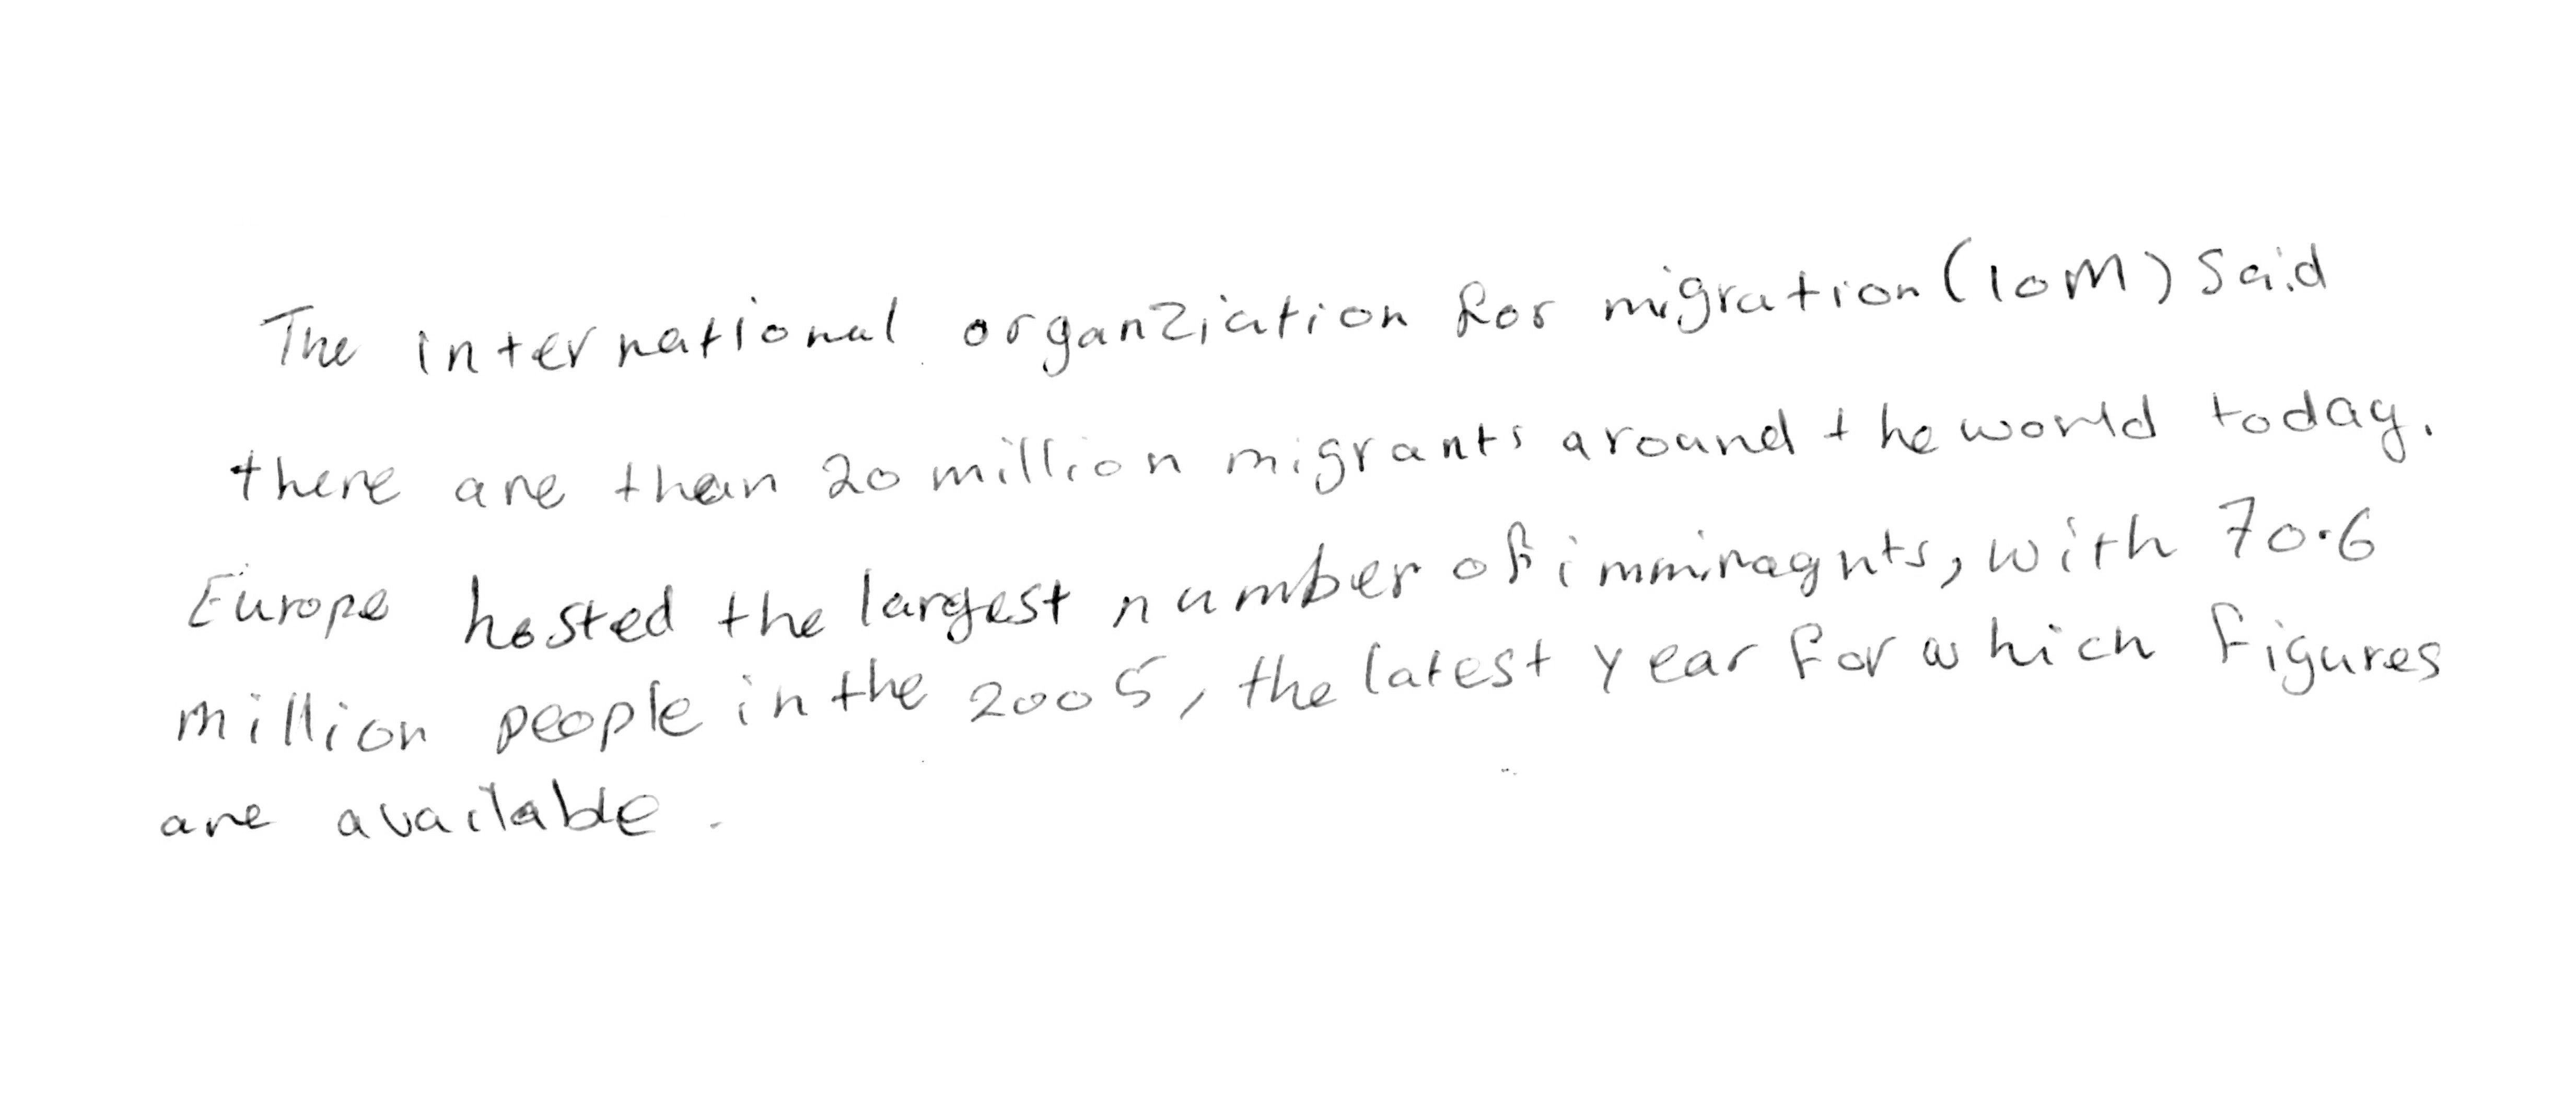 The international organziation for migration (IOM) Said
there are than 20 million migrants around the world today.
Europe hosted the largest number of imminagnts, with 70.6
million people in the 2005, the latest year for which figures
are available.